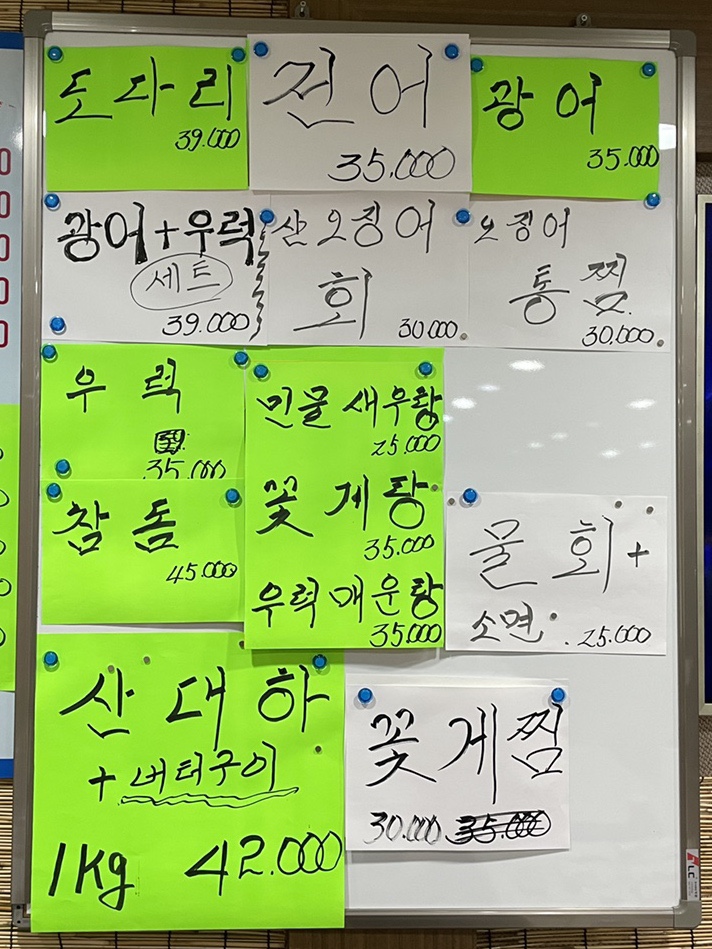 도다리
39.000
전어
35.000
광어
35.000
광어+우럭
세트
39.000
산 오징어
회
30.000
오징어
통찜
30.000
우럭
35.000
민물새우탕
25.000
꽃게탕
35.000
우럭매운탕
35.000
참돔
45.000
물회+
소면 25.000
산대하
+버터구이
1Kg 42.000
꽃게찜
30.000 35.000